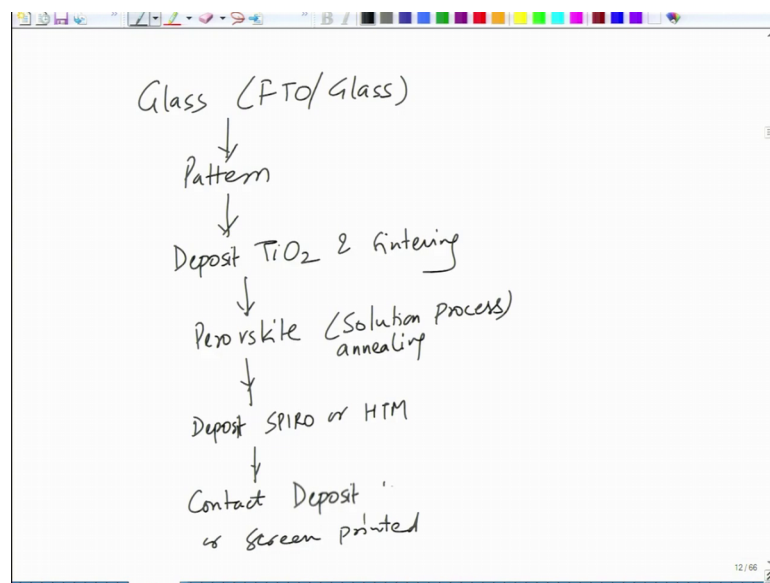 Glass (FTO/Glass)
Pattern
Deposit TiO2 & Sintering
Perovskite (Solution process)
annealing
Deposit SPIRO or HTM
Contact Deposit
or screen printed
12 / 66